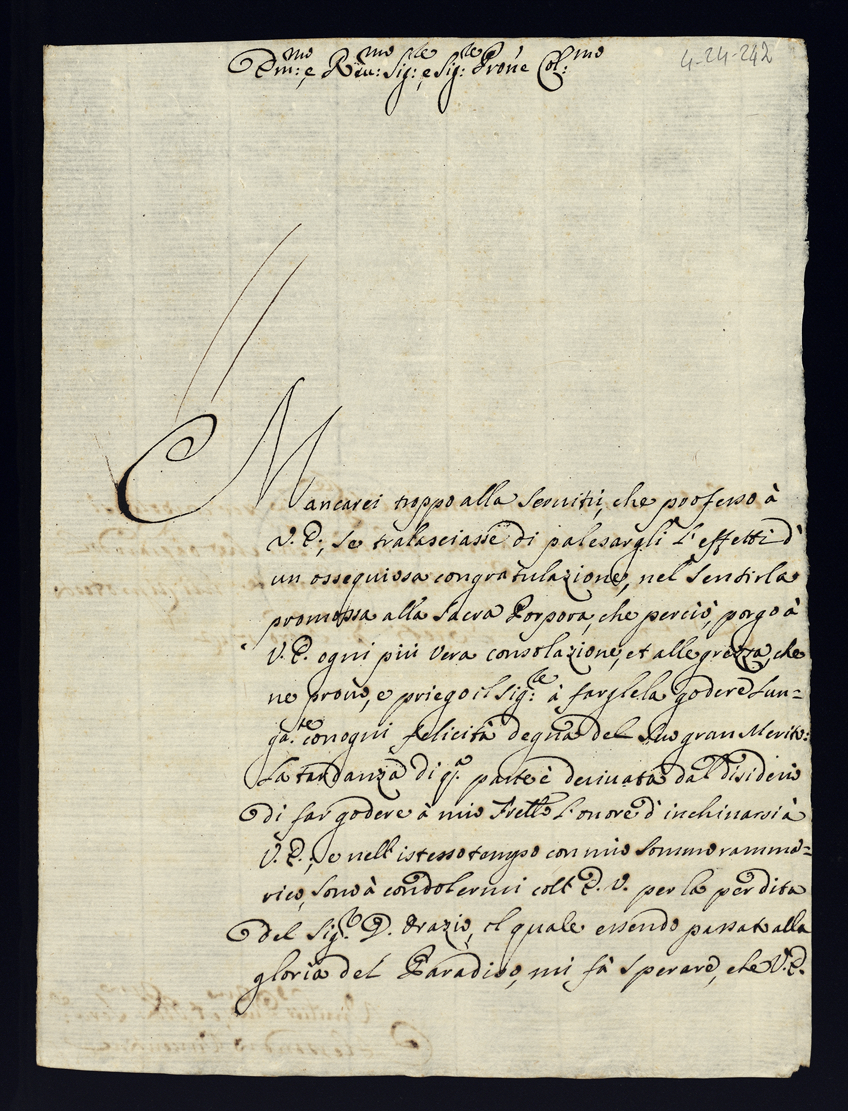 Em:mo e Reu:mo Sig:re e Sig:re Prone Col:mo
4-24-242
Mancarei troppo alla Seruitù, che professo à
V. E:, se tralasciasse di palesargli l'effetti d'
un ossequiosa congratulazione, nel sentirla
promossa alla Sacra Porpora, che perciò, porgo à
V. E. ogni più vera consolazione, et allegrezza, che
ne prouo, e priego il Sig:re à farglela godere lun=
ga:te con ogni felicità degna del suo gran Merito:
La tardanza di q.a parte è deriuata dal disiderio
di far godere à mio Frello l'onore d'inchinarsi à
V. E.; e nell'istesso tempo con mio sommo ramma=
rico, sono à condolermi coll'E. V. per la perdita
del Sig.r D. Orazio, il quale essendo passato alla
gloria del Paradiso, mi fà sperare, che V. E.